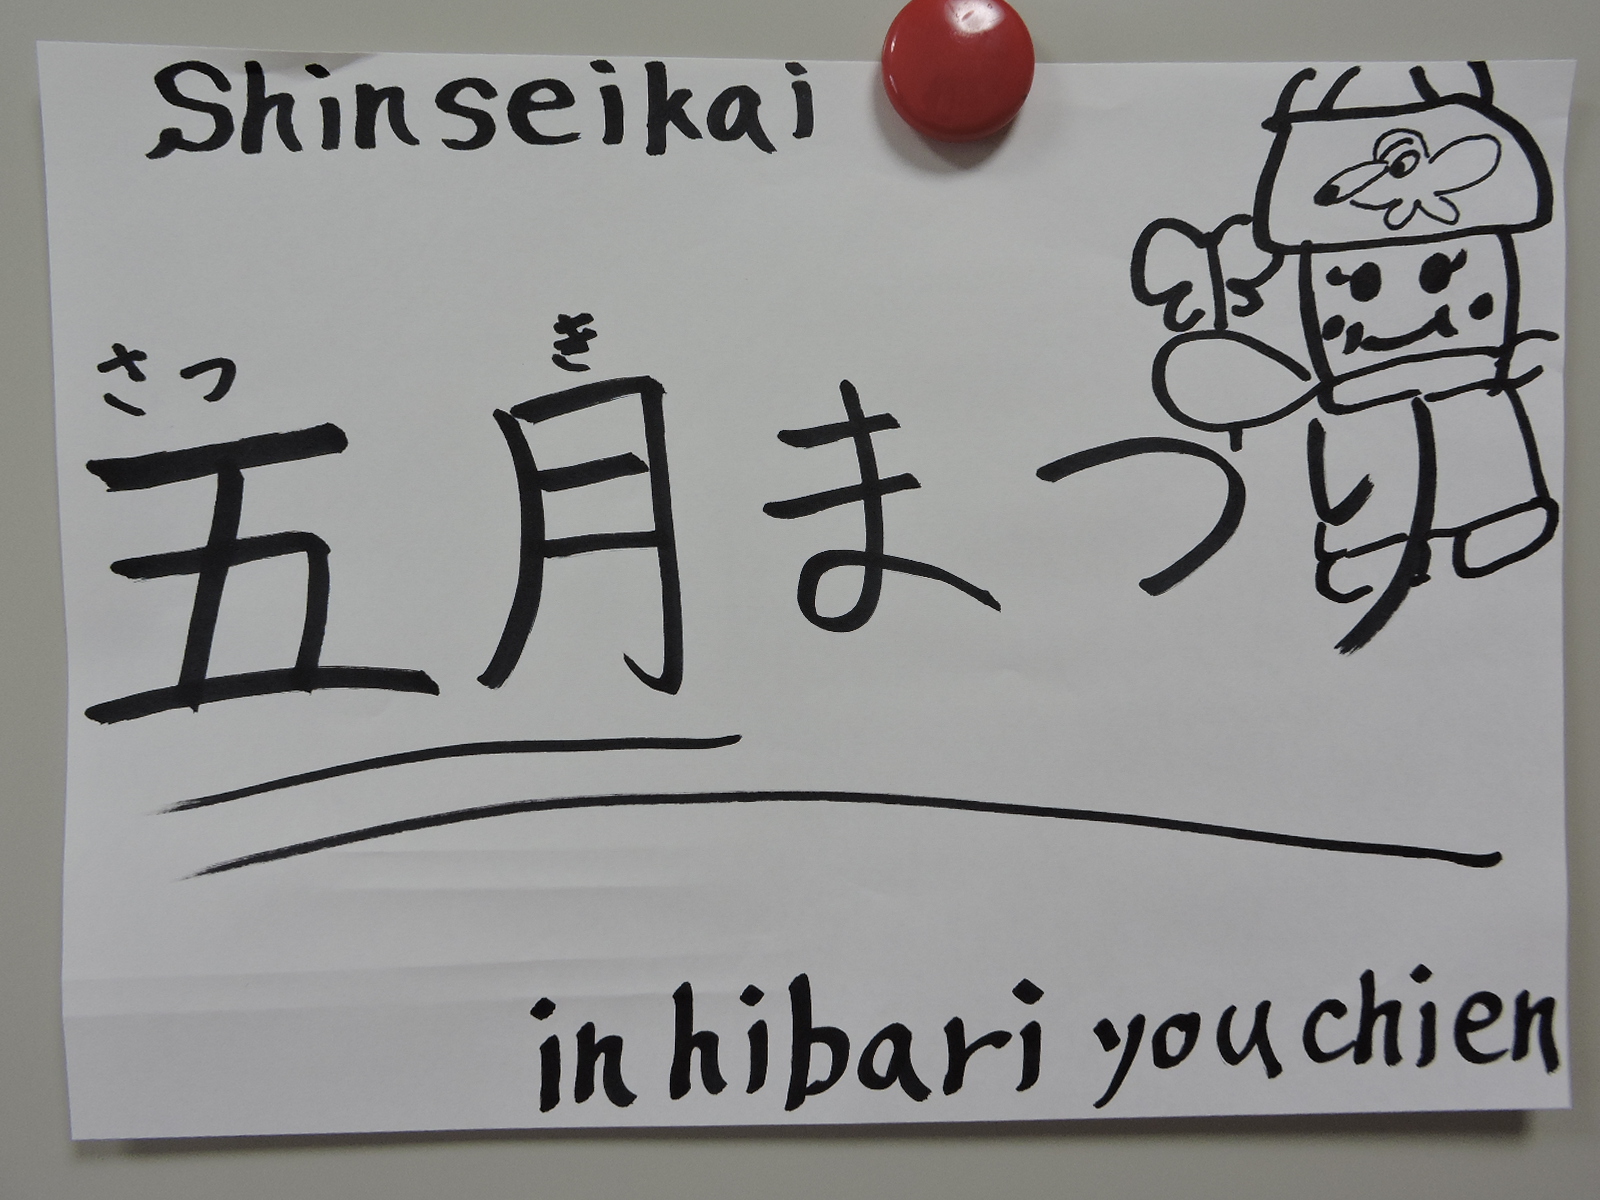 Shinseikai
さつ き
五月まつり
in hibari youchien